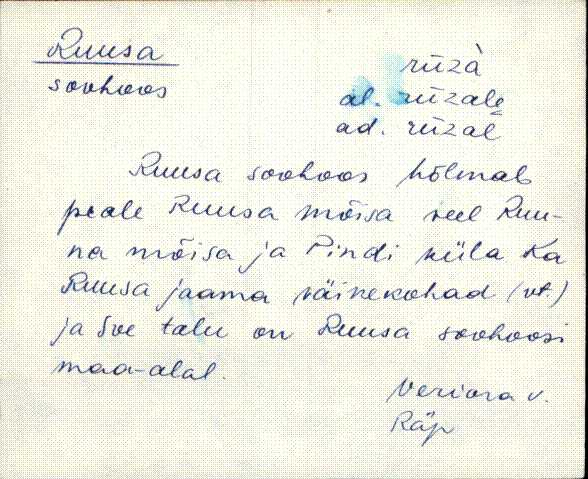 Ruusa
sovhoos
rūzà
al. rūzale
ad. rūzal
Ruusa sovhoos hõlmab
peale Ruusa mõisa veel Ruu-
na mõisa ja Pindi küla Ka
Ruusa jaama väikekohad (vt.)
ja talu on Ruusa sovhoosi
maa-alal.
Veriora v.
Räp